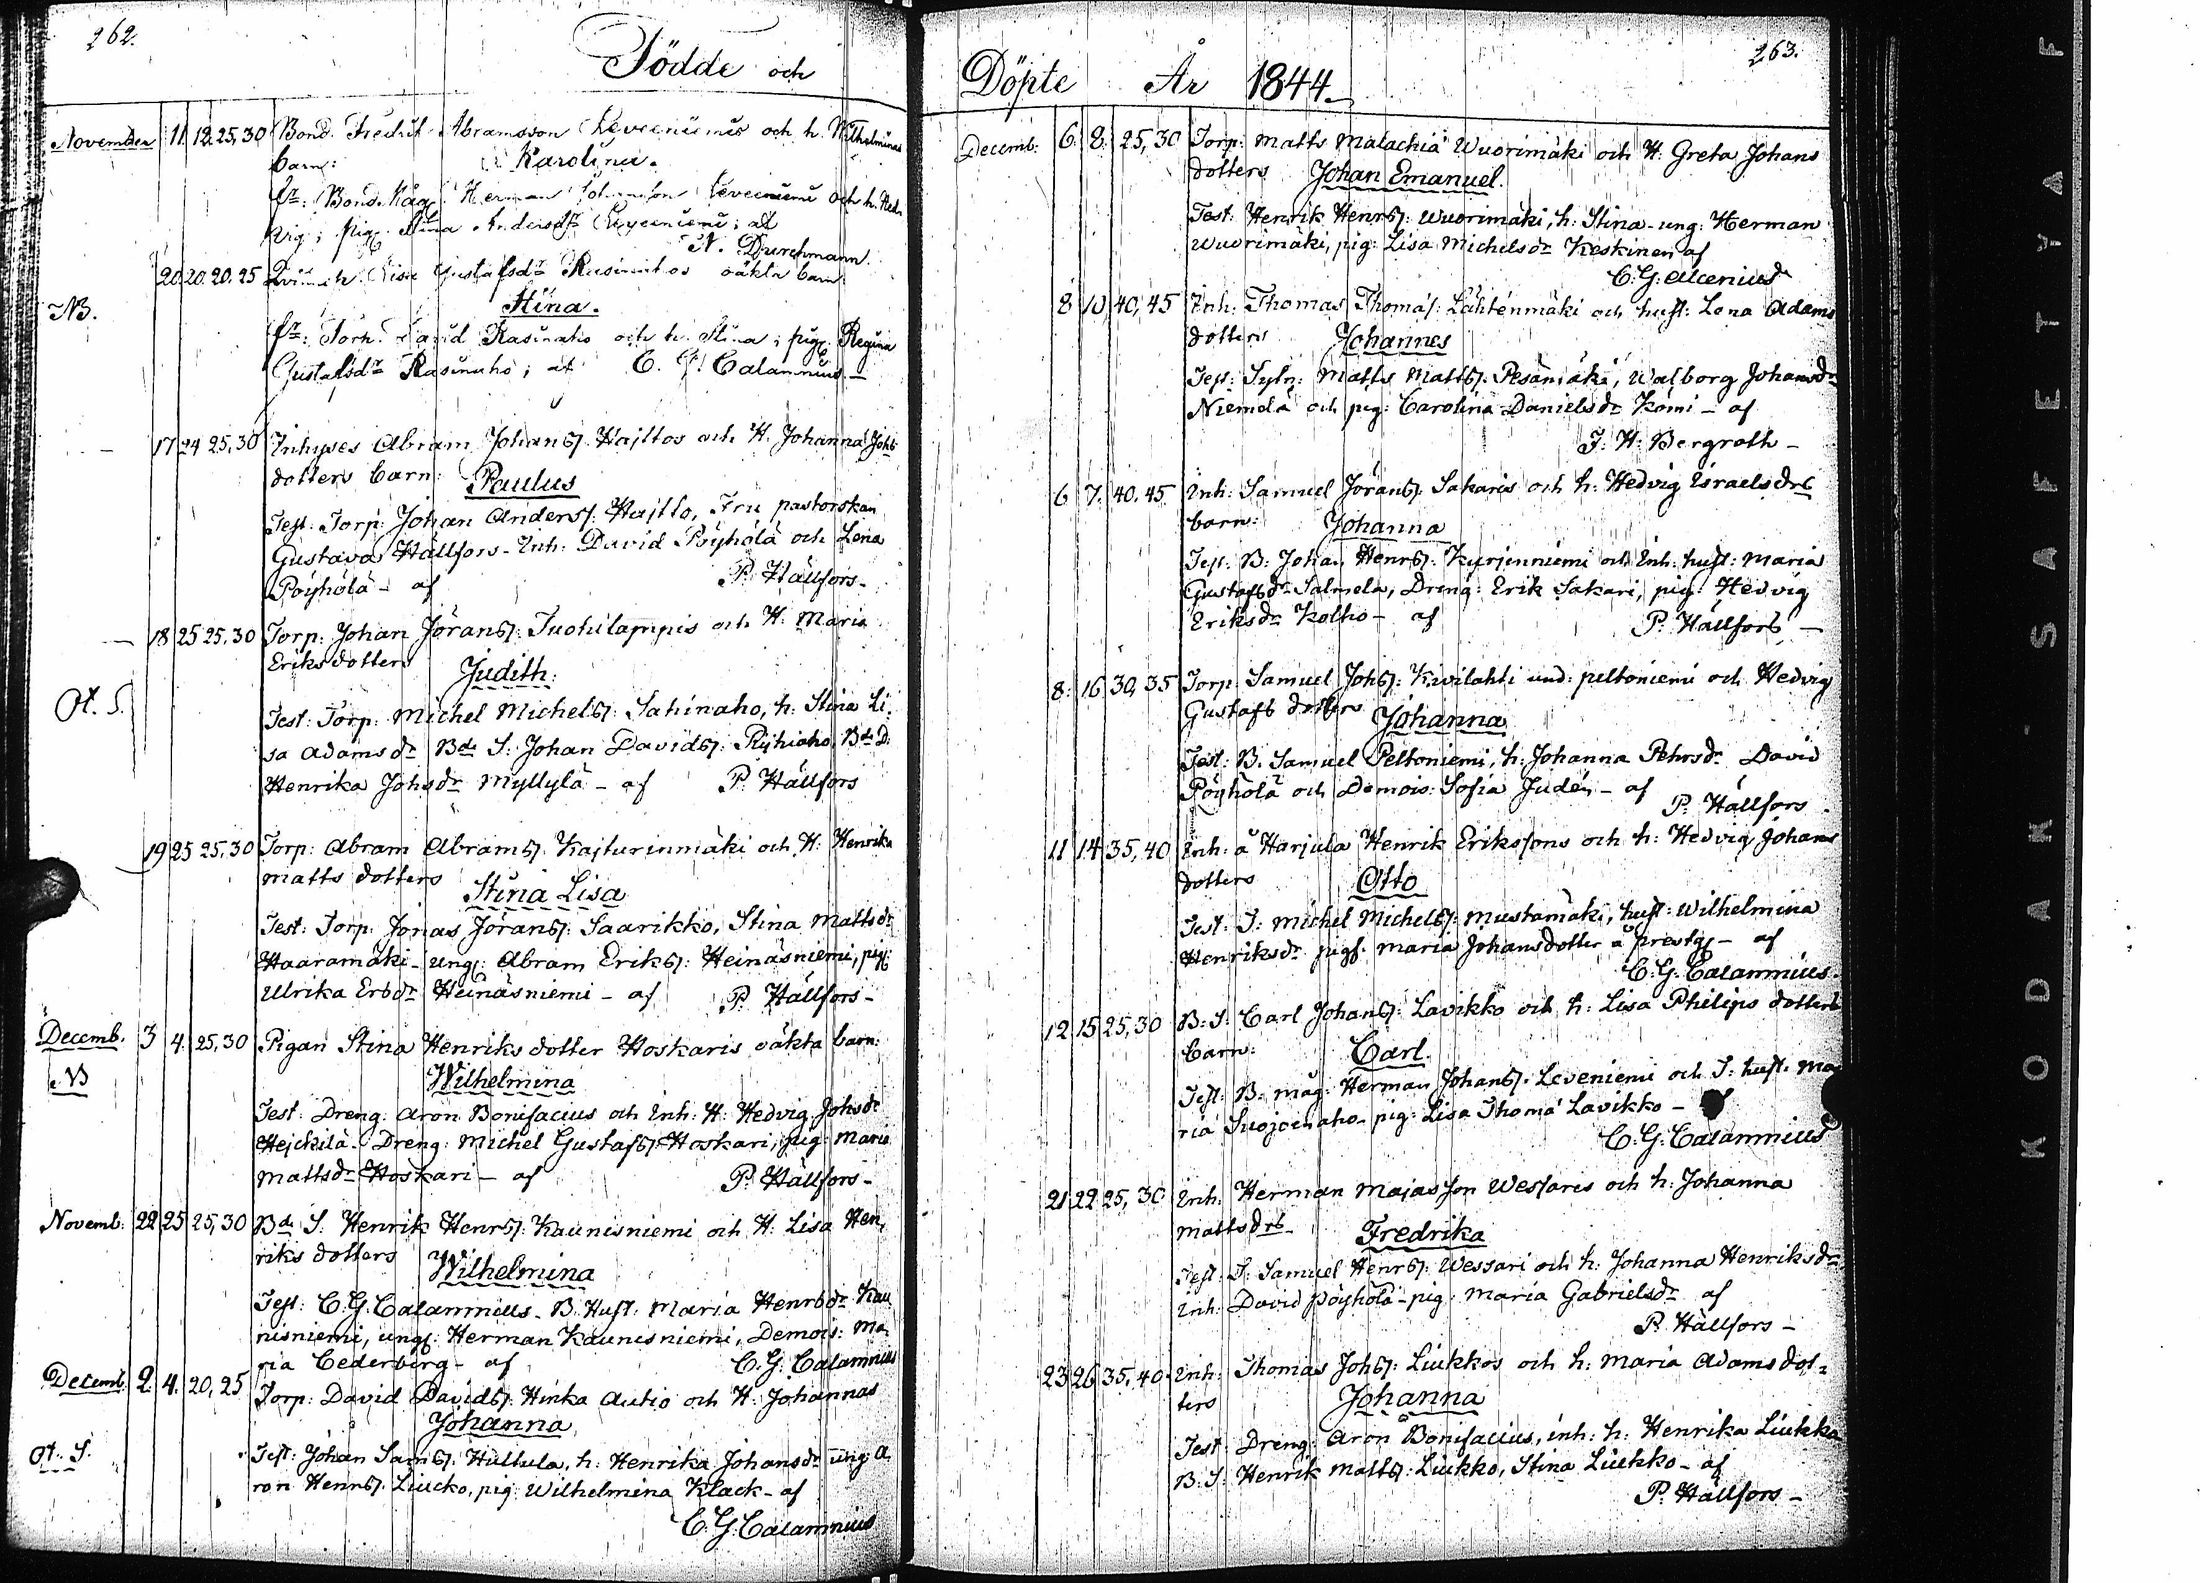 262.
Födde och
November 11. 12. 25,30 Bond. Fredrik Abramsson Leveeniemis och h. Wilhelminas
barn: Karolina.
Bond. Måg Herman Johansson Leveeniemi och h. Hed-
vig; pig. Stina Andersdr Leveeniemi; af
N. Durchmann.
20. 20. 20. 25 Lisa Gustafsdr Rasinahos oäkta barn:
NB. Stina.
Torp. David Rasinaho och h. Stina; pig. Regina
Gustafsdr Rasinaho; af C. G. Calamnius.
17 24 25,30 Inhyses Abram Johans. Hajttos och H. Johanna Johs
dotters barn: Paulus
Test: Torp: Johan Anders. Hajtto, Fru pastorskan
Gustava Hällfors- Inh: David Pöyhölä och Lena
Pöyhölä- af P. Hällfors-
18 25 25,30 Torp: Johan Jörans: Tuohilampis och H. Maria
Eriksdotters Judith.
Ot. S.
Test: Torp: Michel Michels: Sahinaho, h: Stina Li-
sa Adamsdr Bde S: Johan Davids: Ryhiaho, Bde D:
Henrika Johsdr Myllylä- af P. Hällfors
19 25 25,30 Torp: Abram Abrams: Kajturinmäki och H: Henrika
Matts dotters Stina Lisa
Test: Torp: Jonas Jörans: Saarikko, Stina Mattsdr
Haaramäki- ung: Abram Eriks: Heinäsniemi, pig:
Ulrika Ersdr Heinäsniemi- af P. Hällfors-
Decemb. 3 4. 25,30 Pigan Stina Henriks dotter Hoskaris oäkta barn:
NB Wilhelmina
Test: Dreng: Aron Bonifacius och Inh: H: Hedvig Johsdr
Hejckilä- Dreng: Michel Gustafs: Hoskari, pig: Maria
Mattsdr Hoskari- af P. Hällfors-
Novemb: 22 25 25,30 Bde S. Henrik Henrs: Kaunisniemi och H: Lisa Hen-
riks dotters Wilhelmina
Test: C.G. Calamnius- B. Hust: Maria Henrsdr Kau
nisniemi, ung: Herman Kaunisniemi, Demois: Ma-
ria Cederberg- af C.G. Calamnius
Decemb. 2. 4. 20,25 Torp: David Davids: Hinka Autio och H: Johannas
Johanna
Ot. S. Test: Johan Sams: Huttula, h: Henrika Johansdr ung: A
ron Henrs: Liucko, pig: Wilhelmina Klack- af
C.G. Calamnius
263.
Döpte År 1844.
Decemb: 6. 8. 25,30 Torp: Matts Malachiä Wuorimäki och H: Greta Johans
dotters Johan Emanuel.
Test: Henrik Henrs: Wuorimäki, h: Stina- ung: Herman
Wuorimäki, pig: Lisa Michelsdr Keskinen af
C.G. Alcenius
8 10 40,45 Inh: Thomas Thomas: Lähtenmäki och hust: Lena Adams
dotters Johannes
Test: Sytn: Matts Matts: Pesämäki, Walborg Johansdr
Niemelä och pig: Carolina Danielsdr Komi- af
J. H. Bergroth-
6 7. 40,45 Inh: Samuel Jörans: Sakaris och h: Hedvig Israelsdrs
barn: Johanna
Test: B: Johan Henrs: Kurjenniemi och Inh: hust: Maria
Gustafsdr Salmela, Dreng: Erik Sakari, pig: Hedvig
Eriksdr Kolho- af P. Hällfors-
8: 16 30,35 Torp: Samuel Johs: Kivilahti und: peltoniemi och Hedvig
Gustafs dotters Johanna
Test: B: Samuel Peltoniemi, h: Johanna Pehrsdr David
Pöyhölä och Demois: Sofia Judén- af P. Hällfors
11 14 35,40 Inh: å Harjula Henrik Erikssons och h: Hedvig Johans
dotters Otto
Test: T: Michel Michels: Mustamäki, hust: Wilhelmina
Henriksdr pig: Maria Johansdotter å prestg:- af
C.G. Calamnius.
12 15 25,30 B: S: Carl Johans: Lavikko och h: Lisa Philips dotters
barn: Carl.
Test: B: måg: Herman Johans: Leveniemi och T: hust: Ma
ria Suojoenaho- pig: Lisa Thomä Lavikko- af
C.G. Calamnius
21 22 25,30 Inh: Herman Majasson Wessaris och h: Johanna
Mattsdrs- Fredrika
Test: T: Samuel Henrs: Wessari och h: Johanna Henriksdr
Inh: David Pöyhölä- pig: Maria Gabrielsdr af
P. Hällfors-
23 26 35,40 Inh: Thomas Johs: Liukkos och h: Maria Adams dot-
ters Johanna
Test: Dreng: Aron Bonifacius, inh: h: Henrika Liukko
B: S: Henrik Matts: Liukko, Stina Liukko- af
P. Hällfors-
KODAK · SAFETY A F